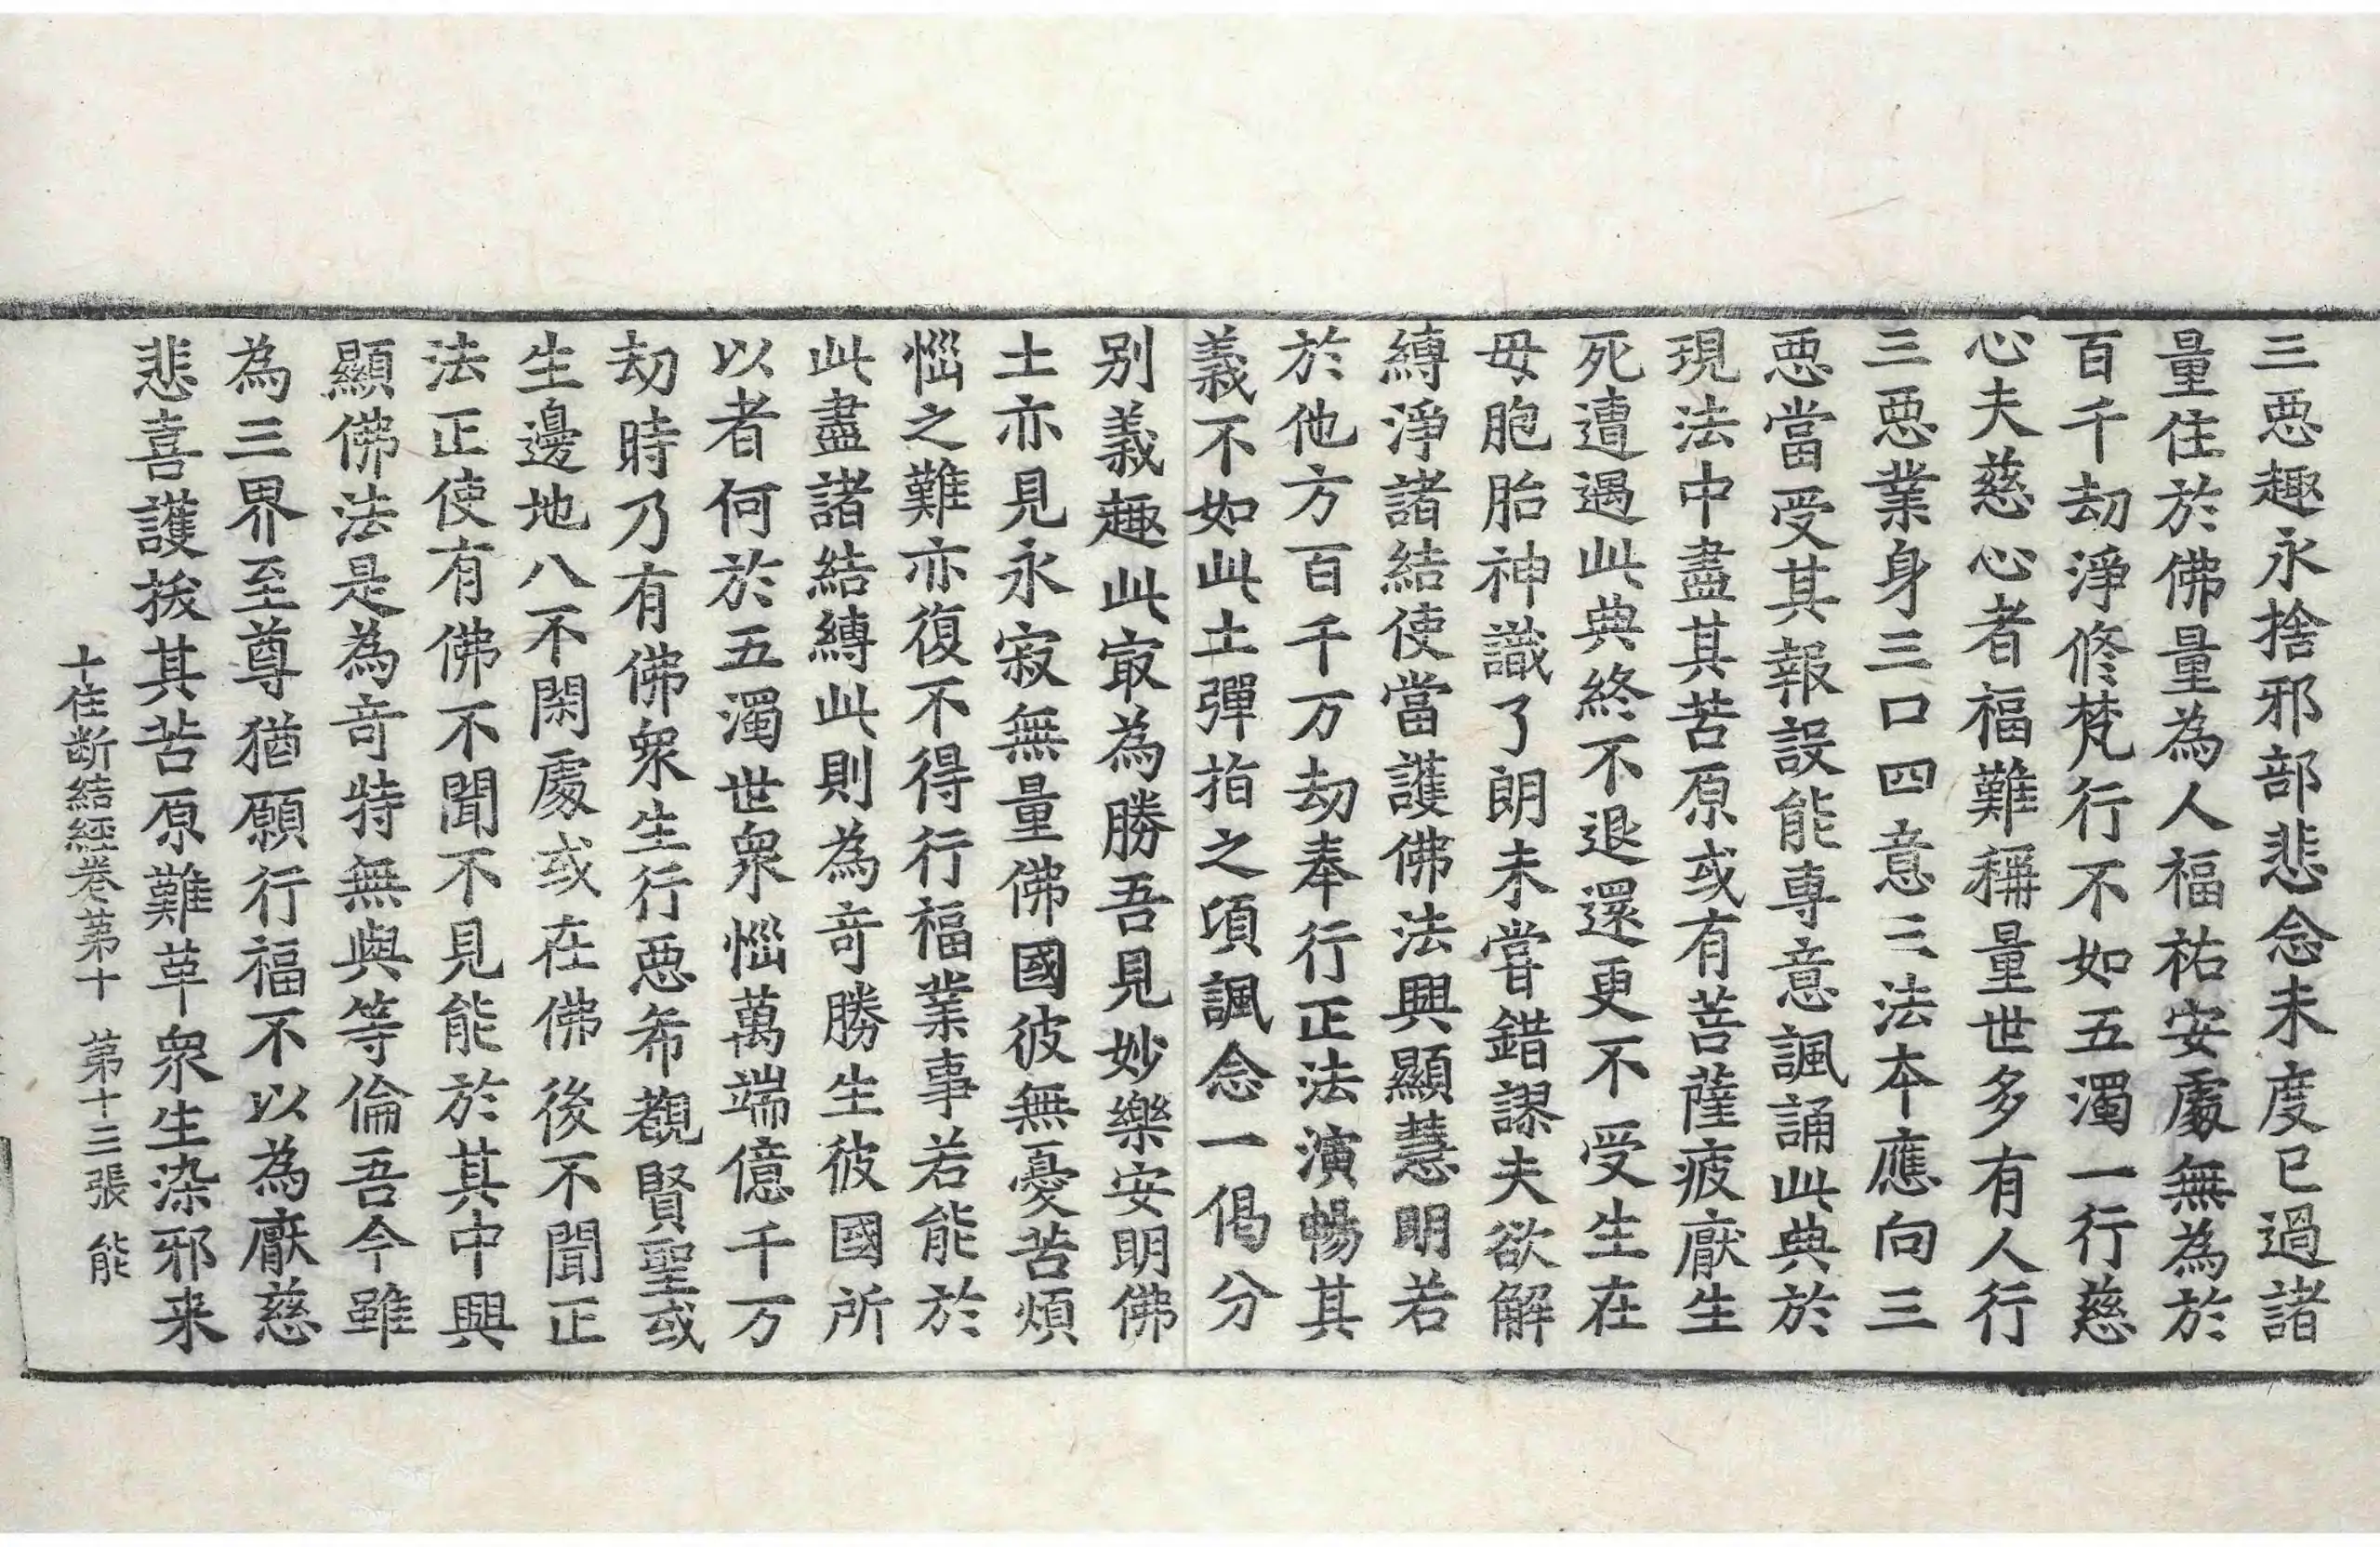 三惡趣永捨邪部悲念未度已過諸
量住於佛量為人福祐安處無為於
百千劫淨修梵行不如五濁一行慈
心夫慈心者福難稱量世多有人行
三惡業身三口四意三法本應向三
惡當受其報設能專意諷誦此典於
現法中盡其苦原或有菩薩疲厭生
死遭遇此典終不退還更不受生在
母胞胎神識了朗未甞錯謬夫欲解
縛淨諸結使當護佛法興顯慧明若
於他方百千万劫奉行正法演暢其
義不如此土彈指之頃諷念一偈分
別義趣此㝡為勝吾見妙樂安明佛
土亦見永寂無量佛國彼無憂苦煩
惱之難亦復不得行福業事若能於
此盡諸結縛此則為竒勝生彼國所
以者何於五濁世衆惱萬端億千万
劫時乃有佛衆生行惡希覩賢聖或
生邊地八不閑處或在佛後不聞正
法正使有佛不聞不見能於其中興
顯佛法是為竒特無與等倫吾今雖
為三界至尊猶願行福不以為厭慈
悲喜護拔其苦原難革衆生染邪来
十住断結經卷第十　第十三張　能